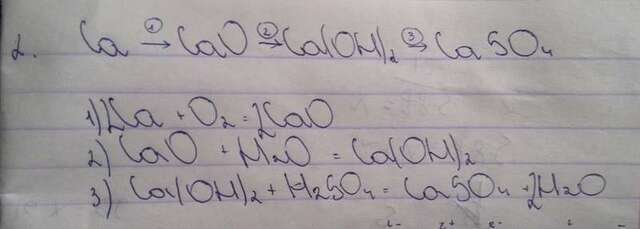 2. Ca ①→ CaO ②→ Ca(OH)₂ ③→ CaSO₄
1) 2Ca + O₂ = 2CaO
2) CaO + H₂O = Ca(OH)₂
3) Ca(OH)₂ + H₂SO₄ = CaSO₄ + 2H₂O